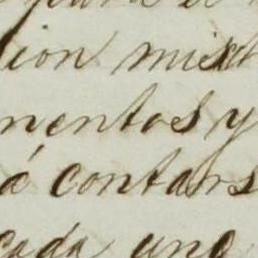 para
cion mixt
mentos y
á contars
cada uno